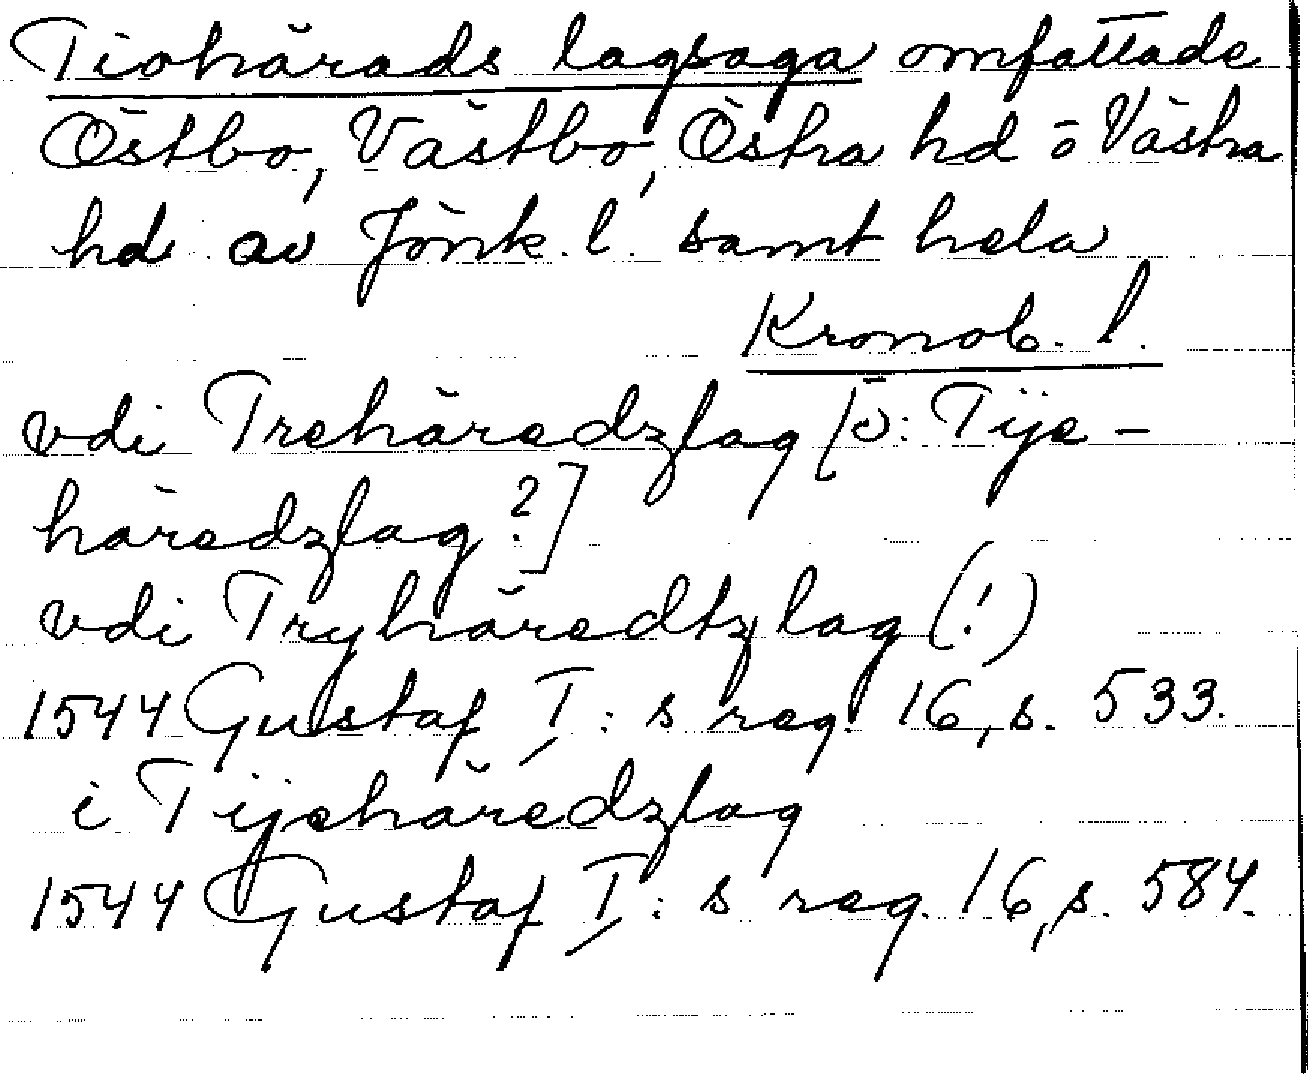 Tiohärads lagsaga omfattade
Östbo, Västbo, Östra hd o Västra
hd av Jönk. l. samt hela
Kronob. l.
vdi Trehäredzlag [ɔ: Tije-
häredzlag?]
vdi Tryhäredtzlag (!)
1544 Gustaf I:s reg. 16, s. 533.
i Tijehäredzlag
1544 Gustaf I:s reg. 16, s. 584.